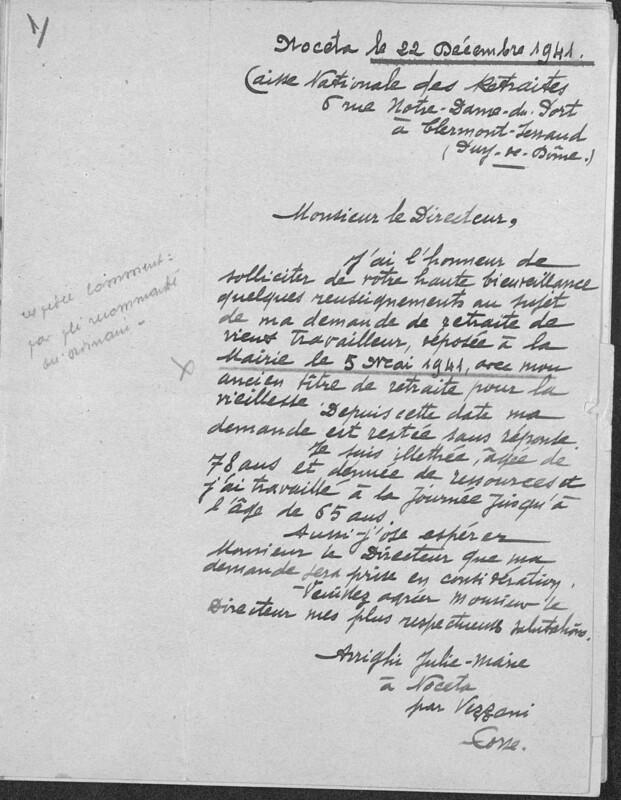 1/
Noceta le 22 Décembre 1941.
Caisse Nationale des Retraites
6 rue Notre-Dame-du-Port
à Clermont-Ferrand
(Puy-de-Dôme.)
Monsieur le Directeur,
J'ai l'honneur de
solliciter de votre haute bienveillance
quelques renseignements au sujet
de ma demande de retraite de
vieux travailleur, déposée à la
Mairie le 5 Mai 1941, avec mon
ancien titre de retraite pour la
vieillesse. Depuis cette date ma
demande est restée sans réponse.
Je suis illettrée, âgée de
78 ans et dénuée de ressources et
j'ai travaillé à la journée jusqu'à
l'âge de 65 ans.
Aussi j'ose espérer
Monsieur le Directeur que ma
demande sera prise en considération.
Veuillez agréer Monsieur le
Directeur mes plus respectueuses salutations.
Arrighi Julie-Marie
à Noceta
par Vezzani
Corse.
expédiée comment :
par pli recommandé
ou ordinaire -
X